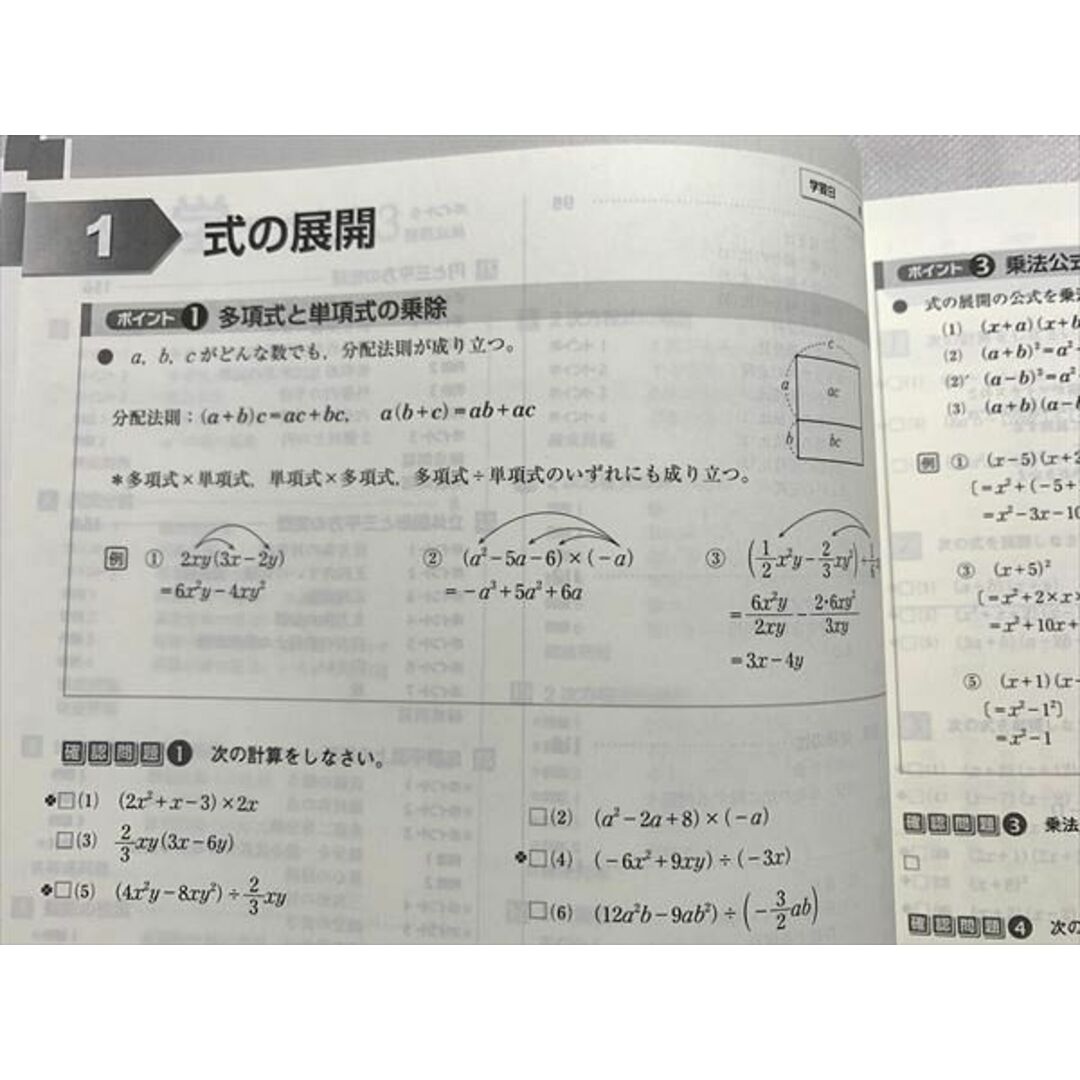 1 式の展開
学習日
ポイント 1 多項式と単項式の乗除
● a, b, cがどんな数でも, 分配法則が成り立つ。
分配法則:(a+b)c=ac+bc, a(b+c)=ab+ac
c
a
ac
b
bc
*多項式×単項式, 単項式×多項式, 多項式÷単項式のいずれにも成り立つ。
例 ① 2xy(3x−2y)
=6x²y−4xy²
② (a²−5a−6)×(−a)
=−a³+5a²+6a
③ (1/2x²y−2/3xy²)÷
=6x²y/2xy−2・6xy²/3xy
=3x−4y
確認問題 1 次の計算をしなさい。
❖□(1) (2x²+x−3)×2x
□(2) (a²−2a+8)×(−a)
□(3) 2/3xy(3x−6y)
❖□(4) (−6x²+9xy)÷(−3x)
❖□(5) (4x²y−8xy²)÷2/3xy
□(6) (12a²b−9ab²)÷(−3/2ab)
ポイント 3 乗法公式
● 式の展開の公式を乗法
(1) (x+a)(x+b
(2) (a+b)²=a²
(2)′ (a−b)²=a²
(3) (a+b)(a−b
例 ① (x−5)(x+2
〔=x²+(−5+
=x²−3x−10
③ (x+5)²
〔=x²+2×x×
=x²+10x+
⑤ (x+1)(x−
〔=x²−1²〕
=x²−1
確認問題 3 乗法
□
確認問題 4 次の